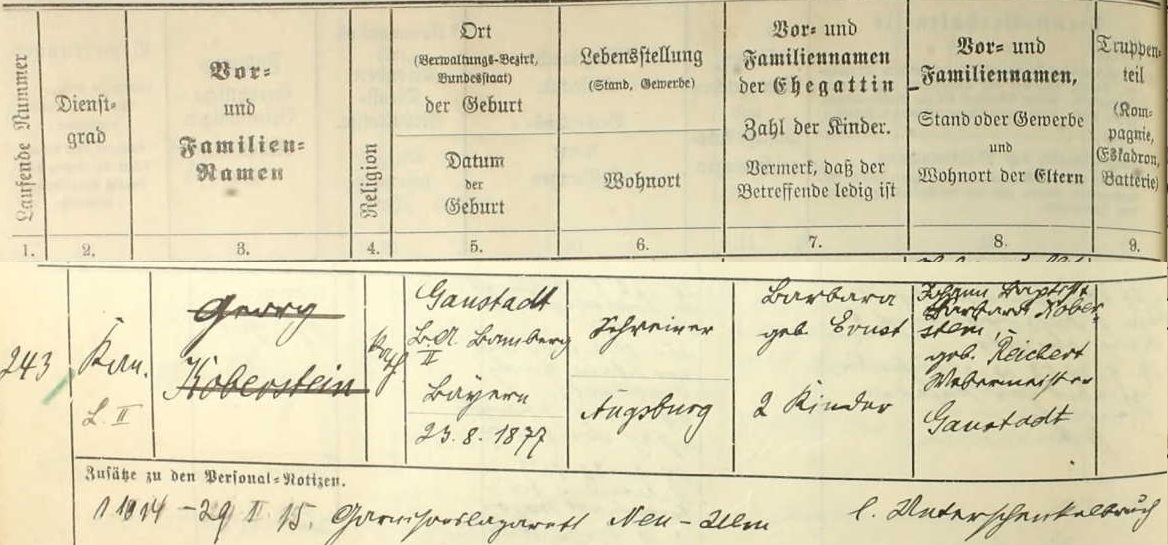 Laufende Nummer
Dienst-
grad
Vor-
und
Familien-
Namen
Religion
Ort
(Verwaltungs-Bezirk,
Bundesstaat)
der Geburt
Datum
der
Geburt
Lebensstellung
(Stand, Gewerbe)
Wohnort
Vor- und
Familiennamen
der Ehegattin
Zahl der Kinder.
Vermerk, daß der
Betreffende ledig ist
Vor- und
Familiennamen,
Stand oder Gewerbe
und
Wohnort der Eltern
Truppen-
teil
(Kom-
pagnie,
Eskadron,
Batterie)
1.
2.
3.
4.
5.
6.
7.
8.
9.
243
Kan.
L. II
Georg
Koberstein
kath.
Gaustadt
B.A Bamberg
II
Bayern
23. 8. 1877
Schreiner
Augsburg
Barbara
geb. Ernst
2 Kinder
Johann Baptist
Barbara Kober-
stein,
geb. Reichert
Webermeister
Gaustadt
Zusätze zu den Personal-Notizen.
1914 - 29 15. Garnisonslazarett Neu-Ulm l. Unterschenkelbruch